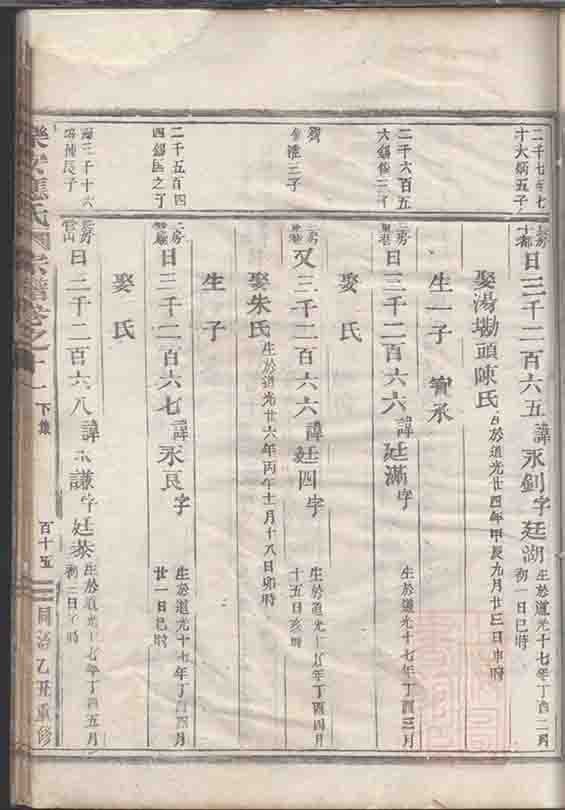 二千七百七
十大炳五子
三房
曰三千二百六五諱永釗字廷湖
生於道光十七年丁酉二月
初一日巳時
娶湯墈頭陳氏
生於道光廿四年甲辰九月廿三日申時
生一子
二千六百五
三房
曰三千二百六六諱廷滿字
生於道光十七年丁酉三月
娶氏
三子
三房
又三千二百六六諱廷四字
生於道光十七年丁酉四月
十五日亥時
娶朱氏
生於道光廿六年丙午十一月十八日卯時
生子
二千五百四
三房
曰三千二百六七諱永良字
生於道光十七年丁酉四月
廿一日巳時
娶氏
三千十六
長子
三房
曰三千二百六八諱永謙字廷恭
生於道光十七年丁酉五月
初三日時
氏宗譜卷之十一
下集
百十五
同治乙丑重修